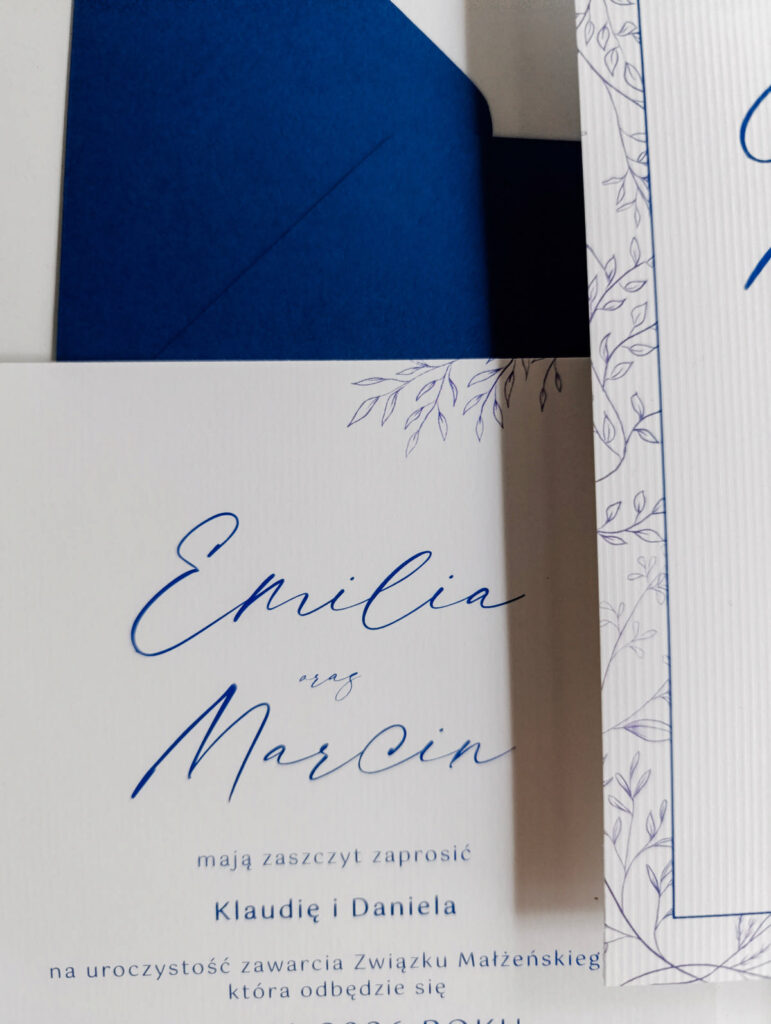 Emilia
oraz
Marcin
mają zaszczyt zaprosić
Klaudię i Daniela
na uroczystość zawarcia Związku Małżeńskieg
która odbędzie się
ROKU